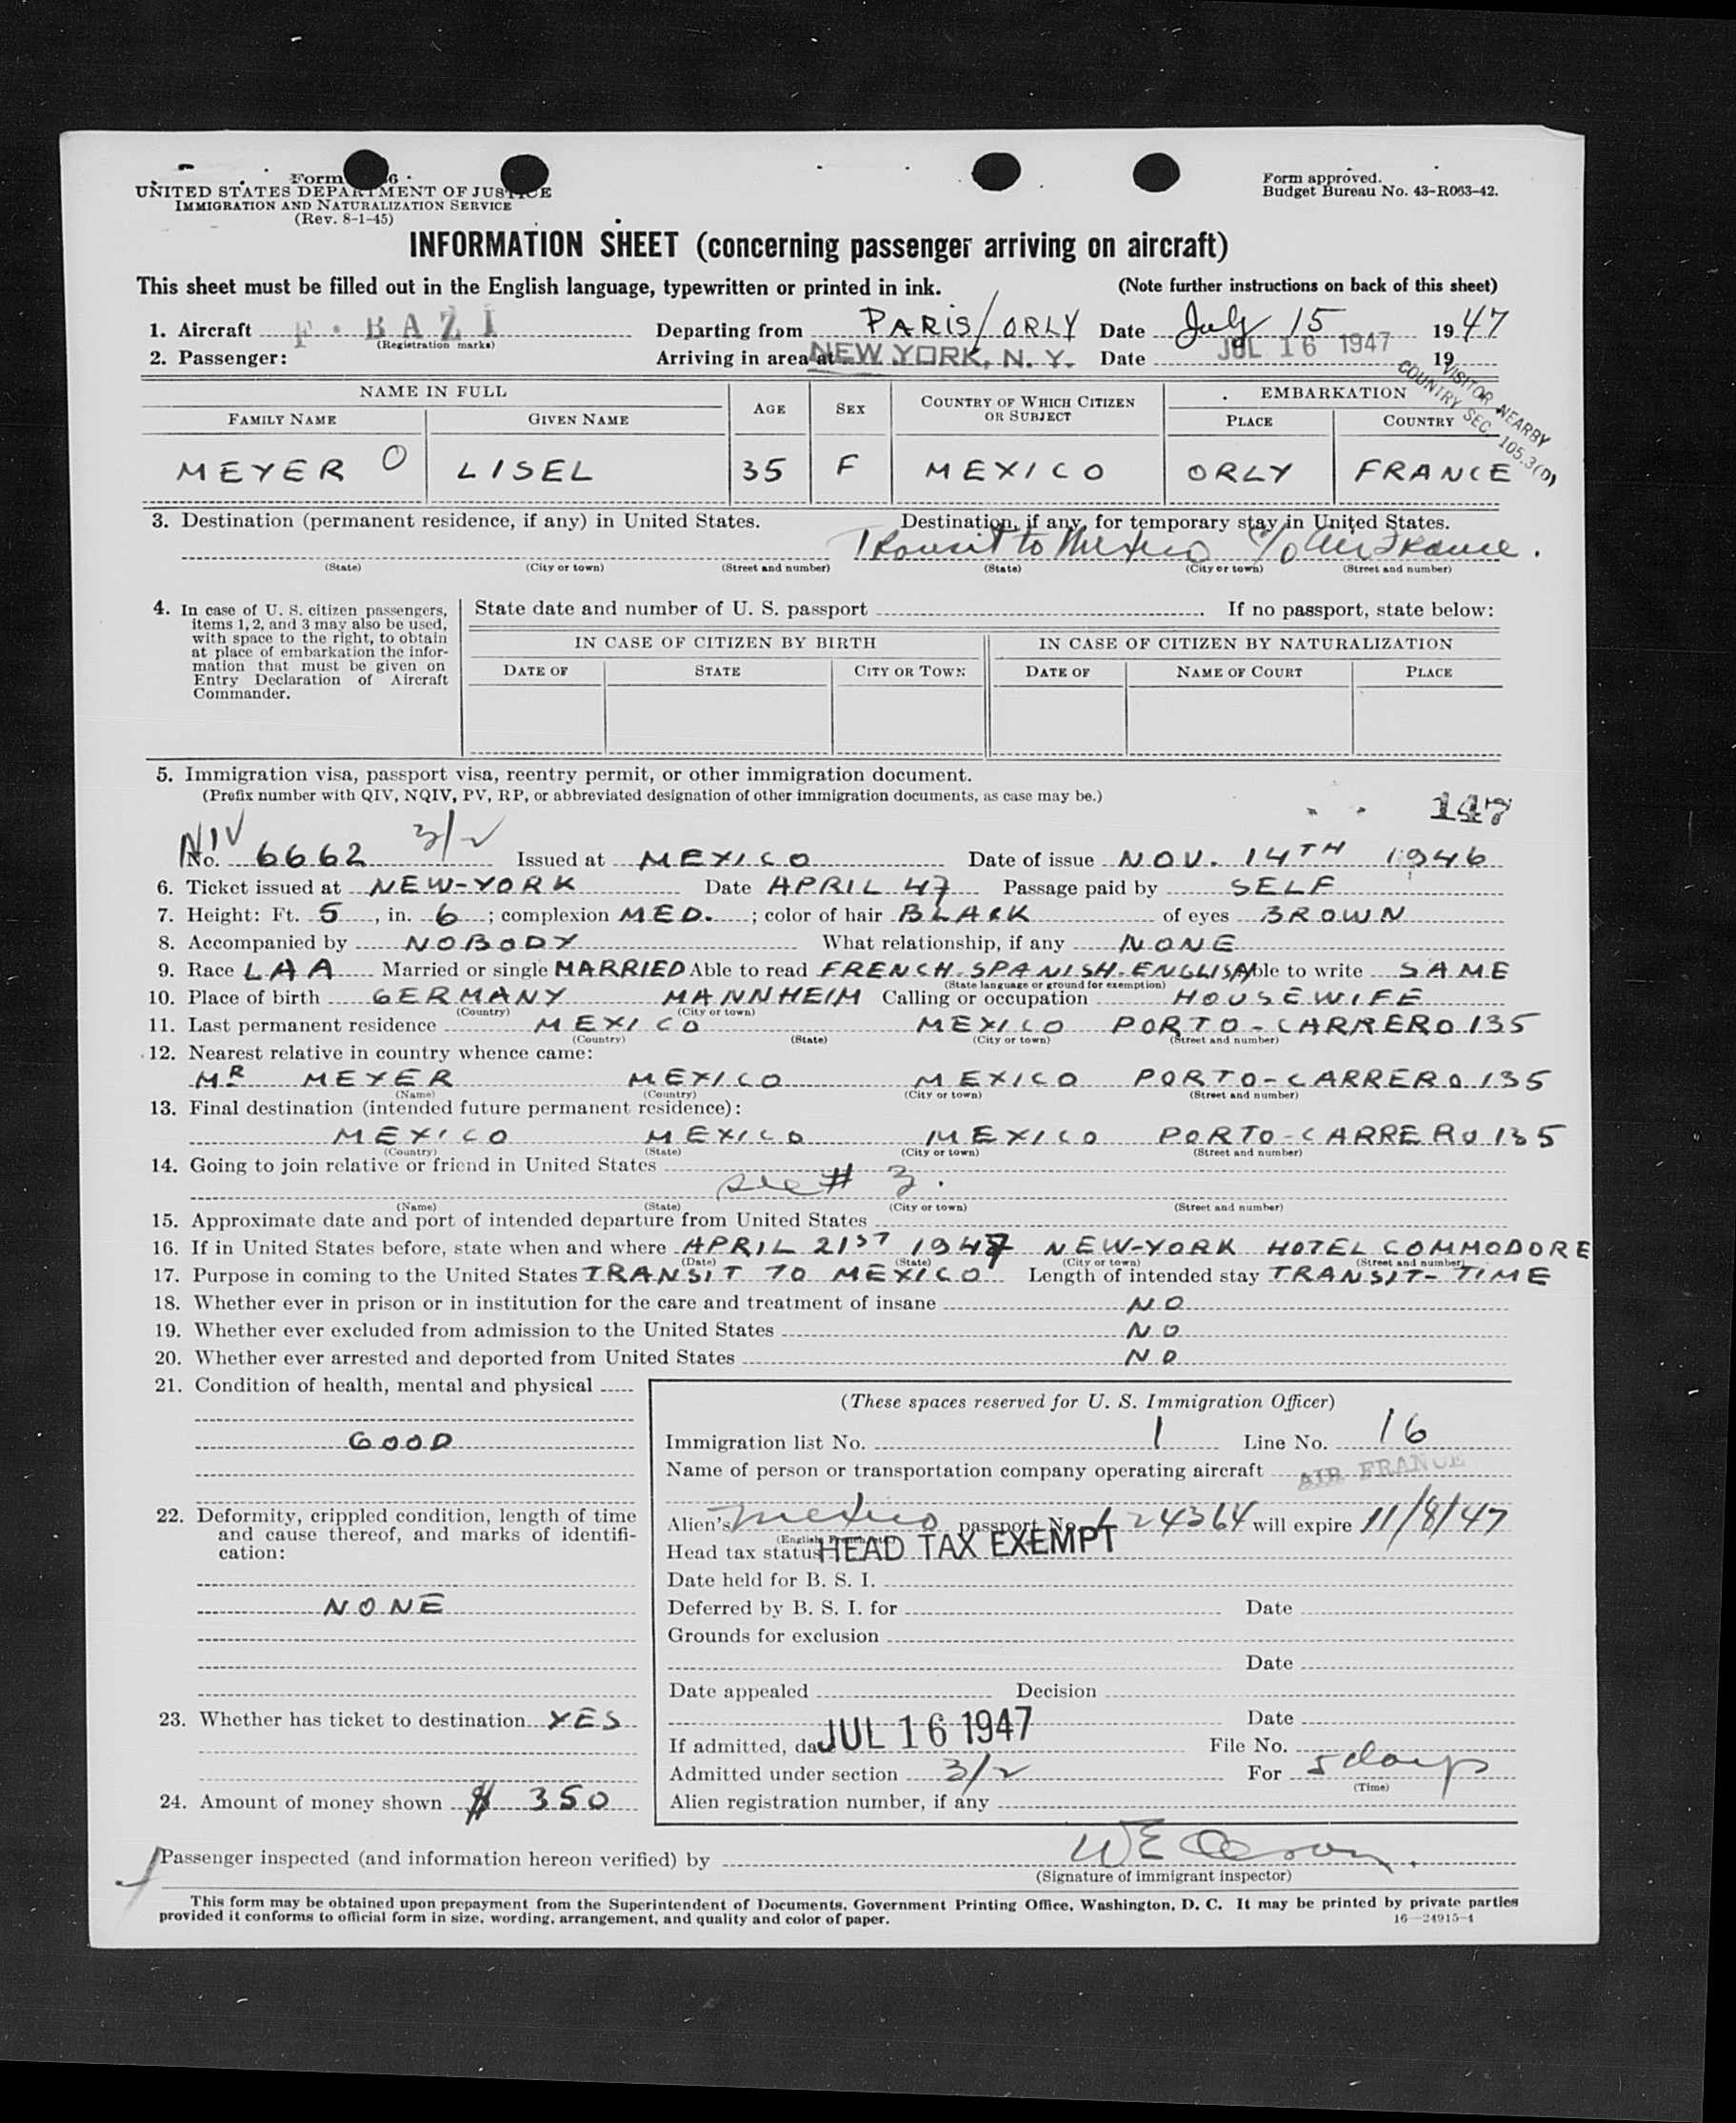 Form 6
UNITED STATES DEPARTMENT OF JUSTICE
IMMIGRATION AND NATURALIZATION SERVICE
(Rev. 8-1-45)
Form approved.
Budget Bureau No. 43-R063-42.
INFORMATION SHEET (concerning passenger arriving on aircraft)
This sheet must be filled out in the English language, typewritten or printed in ink. (Note further instructions on back of this sheet)
1. Aircraft F. BAZI Departing from PARIS/ORLY Date July 15 1947
(Registration marks)
2. Passenger: Arriving in area at NEW YORK, N. Y. Date JUL 16 1947 19
VISITOR NEARBY
COUNTRY SEC. 105.3(D)
NAME IN FULL AGE SEX COUNTRY OF WHICH CITIZEN OR SUBJECT EMBARKATION
FAMILY NAME GIVEN NAME PLACE COUNTRY
MEYER O LISEL 35 F MEXICO ORLY FRANCE
3. Destination (permanent residence, if any) in United States. Destination, if any, for temporary stay in United States.
Transit to Mexico c/o Air France.
(State) (City or town) (Street and number) (State) (City or town) (Street and number)
4. In case of U. S. citizen passengers,
items 1, 2, and 3 may also be used,
with space to the right, to obtain
at place of embarkation the infor-
mation that must be given on
Entry Declaration of Aircraft
Commander.
State date and number of U. S. passport If no passport, state below:
IN CASE OF CITIZEN BY BIRTH IN CASE OF CITIZEN BY NATURALIZATION
DATE OF STATE CITY OR TOWN DATE OF NAME OF COURT PLACE
5. Immigration visa, passport visa, reentry permit, or other immigration document.
(Prefix number with QIV, NQIV, PV, RP, or abbreviated designation of other immigration documents, as case may be.)
147
NIV 3/2
No. 6662 Issued at MEXICO Date of issue NOV. 14TH 1946
6. Ticket issued at NEW-YORK Date APRIL 47 Passage paid by SELF
7. Height: Ft. 5, in. 6; complexion MED.; color of hair BLACK of eyes BROWN
8. Accompanied by NOBODY What relationship, if any NONE
9. Race LAA Married or single MARRIED Able to read FRENCH-SPANISH-ENGLISH Able to write SAME
(State language or ground for exemption)
10. Place of birth GERMANY MANNHEIM Calling or occupation HOUSEWIFE
(Country) (City or town)
11. Last permanent residence MEXICO MEXICO PORTO-CARRERO 135
(Country) (State) (City or town) (Street and number)
12. Nearest relative in country whence came:
MR MEYER MEXICO MEXICO PORTO-CARRERO 135
(Name) (Country) (City or town) (Street and number)
13. Final destination (intended future permanent residence):
MEXICO MEXICO MEXICO PORTO-CARRERO 135
(Country) (State) (City or town) (Street and number)
14. Going to join relative or friend in United States
see # 3.
(Name) (State) (City or town) (Street and number)
15. Approximate date and port of intended departure from United States
16. If in United States before, state when and where APRIL 21ST 1947 NEW-YORK HOTEL COMMODORE
(Date) (State) (City or town) (Street and number)
17. Purpose in coming to the United States TRANSIT TO MEXICO Length of intended stay TRANSIT-TIME
18. Whether ever in prison or in institution for the care and treatment of insane NO
19. Whether ever excluded from admission to the United States NO
20. Whether ever arrested and deported from United States NO
21. Condition of health, mental and physical
GOOD
22. Deformity, crippled condition, length of time
and cause thereof, and marks of identifi-
cation:
NONE
23. Whether has ticket to destination YES
24. Amount of money shown $ 350
(These spaces reserved for U. S. Immigration Officer)
Immigration list No. 1 Line No. 16
Name of person or transportation company operating aircraft AIR FRANCE
Alien's Mexico passport No. 24364 will expire 11/8/47
Head tax status HEAD TAX EXEMPT
Date held for B. S. I.
Deferred by B. S. I. for Date
Grounds for exclusion
Date
Date appealed Decision
Date
If admitted, date JUL 16 1947 File No.
Admitted under section 3/2 For 5 days
(Time)
Alien registration number, if any
Passenger inspected (and information hereon verified) by
(Signature of immigrant inspector)
This form may be obtained upon prepayment from the Superintendent of Documents, Government Printing Office, Washington, D. C. It may be printed by private parties
provided it conforms to official form in size, wording, arrangement, and quality and color of paper. 16—24915-1